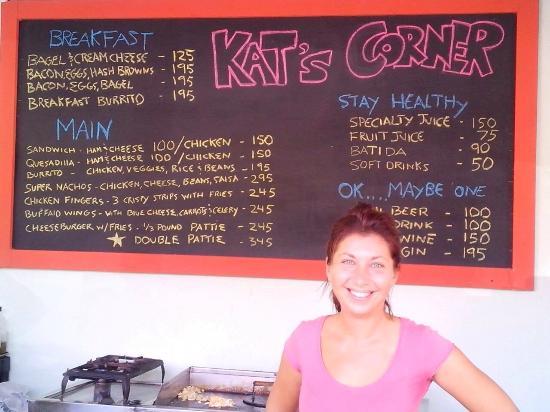 BREAKFAST
BAGEL & CREAM CHEESE - 125
BACON, EGGS, HASH BROWNS - 195
BACON, EGGS, BAGEL - 195
BREAKFAST BURRITO - 195
MAIN
SANDWICH - HAM & CHEESE 100 / CHICKEN - 150
QUESADILLA - HAM & CHEESE 100 / CHICKEN - 150
BURRITO - CHICKEN, VEGGIES, RICE & BEANS - 195
SUPER NACHOS - CHICKEN, CHEESE, BEANS, SALSA - 295
CHICKEN FINGERS - 3 CRISPY STRIPS WITH FRIES - 245
BUFFALO WINGS - WITH BLUE CHEESE, CARROTS & CELERY - 245
CHEESEBURGER W/FRIES - 1/3 POUND PATTIE - 245
DOUBLE PATTIE - 345
KAT'S CORNER
STAY HEALTHY
SPECIALTY JUICE - 150
FRUIT JUICE - 75
BATIDA - 90
SOFT DRINKS - 50
OK.... MAYBE ONE
BEER - 100
DRINK - 100
WINE - 150
GIN - 195